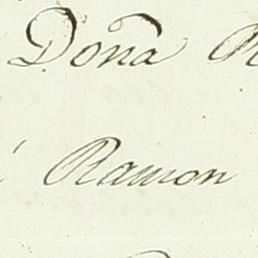 Doña
Ramon